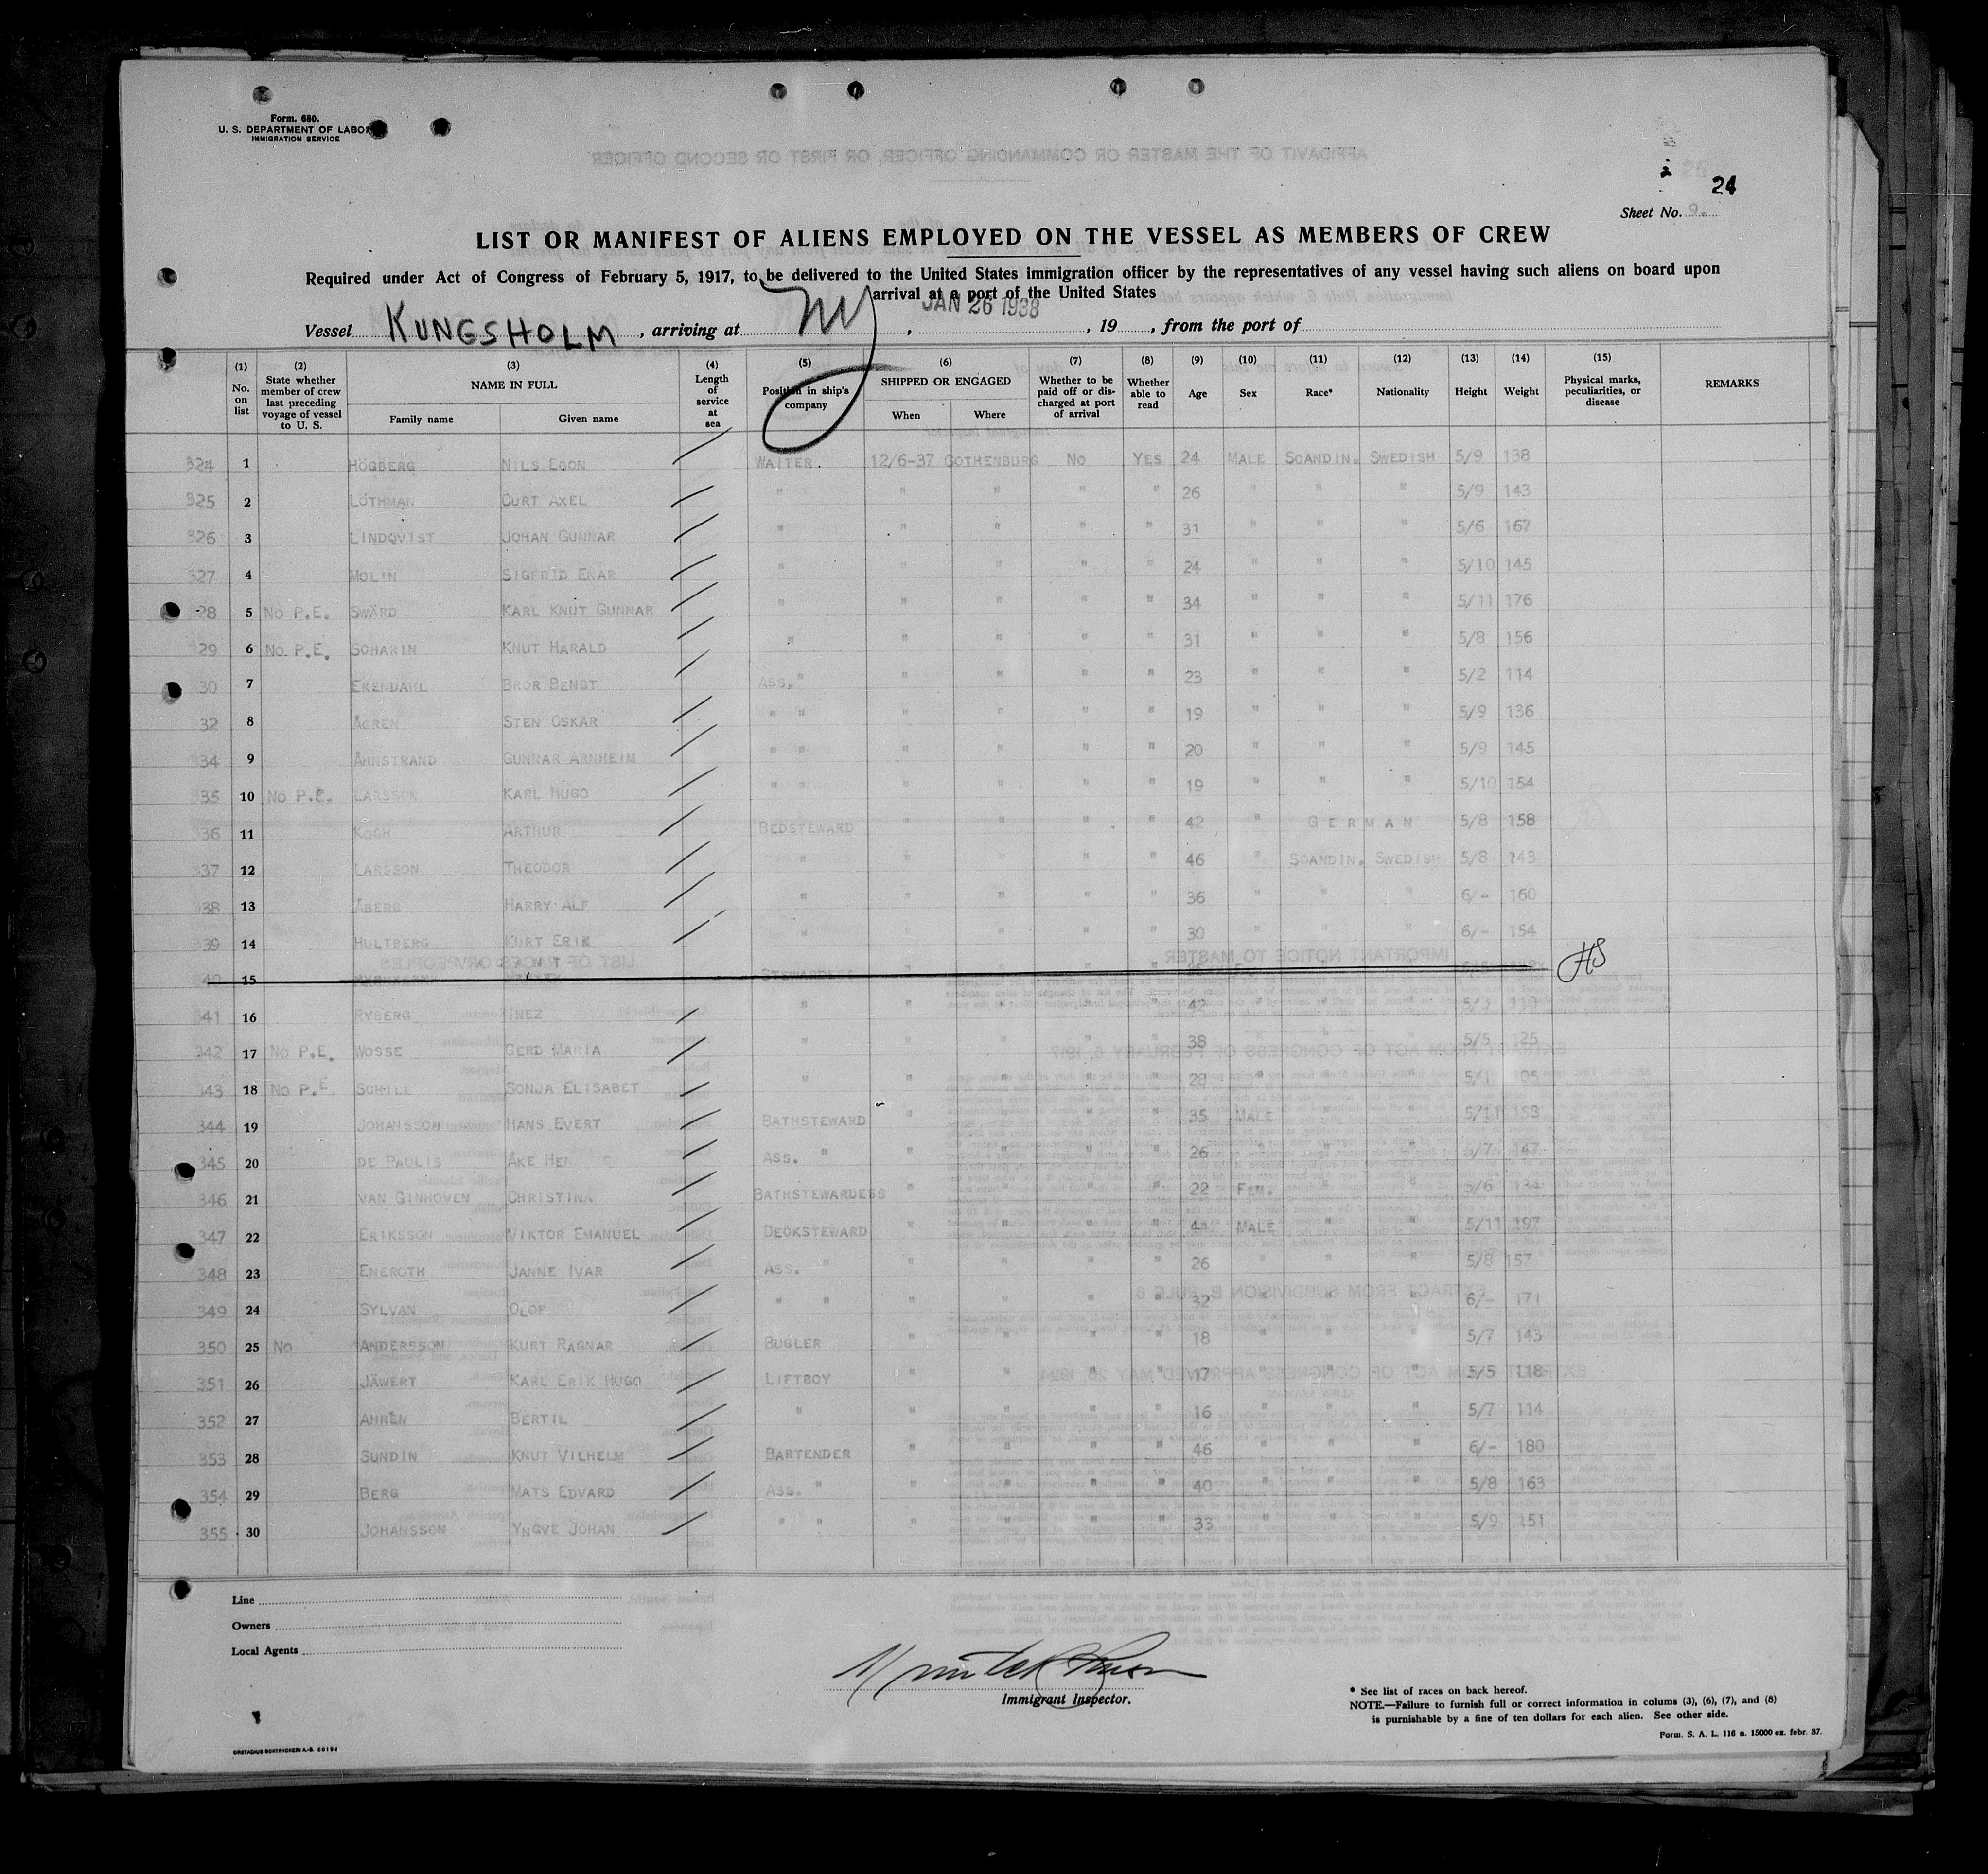 Form. 680.
U. S. DEPARTMENT OF LABOR
IMMIGRATION SERVICE
24
Sheet No. 9.
LIST OR MANIFEST OF ALIENS EMPLOYED ON THE VESSEL AS MEMBERS OF CREW
Required under Act of Congress of February 5, 1917, to be delivered to the United States immigration officer by the representatives of any vessel having such aliens on board upon
arrival at a port of the United States
Vessel KUNGSHOLM, arriving at NY, JAN 26 1938, 19, from the port of
(1) No. on list (2) State whether member of crew last preceding voyage of vessel to U. S. (3) NAME IN FULL Family name Given name (4) Length of service at sea (5) Position in ship's company (6) SHIPPED OR ENGAGED When Where (7) Whether to be paid off or discharged at port of arrival (8) Whether able to read (9) Age (10) Sex (11) Race* (12) Nationality (13) Height (14) Weight (15) Physical marks, peculiarities, or disease REMARKS
324 1 HÖGBERG NILS EGON WAITER. 12/6-37 GOTHENBURG NO YES 24 MALE SCANDIN. SWEDISH 5/9 138
325 2 LÖTHMAN CURT AXEL " " " " " 26 " " " 5/9 143
326 3 LINDQVIST JOHAN GUNNAR " " " " " 31 " " " 5/6 167
327 4 MOLIN SIGFRID ENAR " " " " " 24 " " " 5/10 145
328 5 NO P.E. SWÄRD KARL KNUT GUNNAR " " " " " 34 " " " 5/11 176
329 6 NO P.E. SCHARIN KNUT HARALD " " " " " 31 " " " 5/8 156
330 7 EKENDAHL BROR BENGT ASS. " " " " " 23 " " " 5/2 114
32 8 ÅGREN STEN OSKAR " " " " " " 19 " " " 5/9 136
334 9 ÅHNSTRAND GUNNAR ARNHEIM " " " " " " 20 " " " 5/9 145
335 10 NO P.E. LARSSON KARL HUGO " " " " " " 19 " " " 5/10 154
336 11 KOCH ARTHUR BEDSTEWARD " " " " 42 " GERMAN 5/8 158
337 12 LARSSON THEODOR " " " " " 46 " SCANDIN. SWEDISH 5/8 143
338 13 ÅBERG HARRY ALF " " " " " 36 " " " 6/- 160
339 14 HULTBERG KURT ERIK " " " " " 30 " " " 6/- 154
340 15 STEWARDESS HS
341 16 RYBERG INEZ " " " " " 42 " " " 5/3 119
342 17 NO P.E. WOSSE GERD MARIA " " " " " 38 " " " 5/5 125
343 18 NO P.E. SCHILL SONJA ELISABET " " " " " 28 " " " 5/1 105
344 19 JOHANSSON HANS EVERT BATHSTEWARD " " " " 35 MALE " " 5/11 153
345 20 DE PAULIS ÅKE ASS. " " " " " 26 " " " 5/7 147
346 21 VAN GINHOVEN CHRISTINA BATHSTEWARDESS " " " " 22 FEM. " " 5/6 134
347 22 ERIKSSON VIKTOR EMANUEL DECKSTEWARD " " " " MALE " " 5/11 197
348 23 ENEROTH JANNE IVAR ASS. " " " " " 26 " " " 5/8 157
349 24 SYLVAN OLOF " " " " " " 32 " " " 6/- 171
350 25 NO ANDERSSON KURT RAGNAR BUGLER " " " " 18 " " " 5/7 143
351 26 JÄWERT KARL ERIK HUGO LIFTBOY " " " " 17 " " " 5/5 118
352 27 AHRÉN BERTIL " " " " " 16 " " " 5/7 114
353 28 SUNDIN KNUT VILHELM BARTENDER " " " " 46 " " " 6/- 180
354 29 BERG MATS EDVARD ASS. " " " " " 40 " " " 5/8 163
355 30 JOHANSSON YNGVE JOHAN " " " " " " 33 " " " 5/9 151
Line
Owners
Local Agents
Immigrant Inspector.
* See list of races on back hereof.
NOTE.—Failure to furnish full or correct information in colums (3), (6), (7), and (8)
is purnishable by a fine of ten dollars for each alien. See other side.
Form. S. A. L. 116 n. 15000 ex. febr. 37.